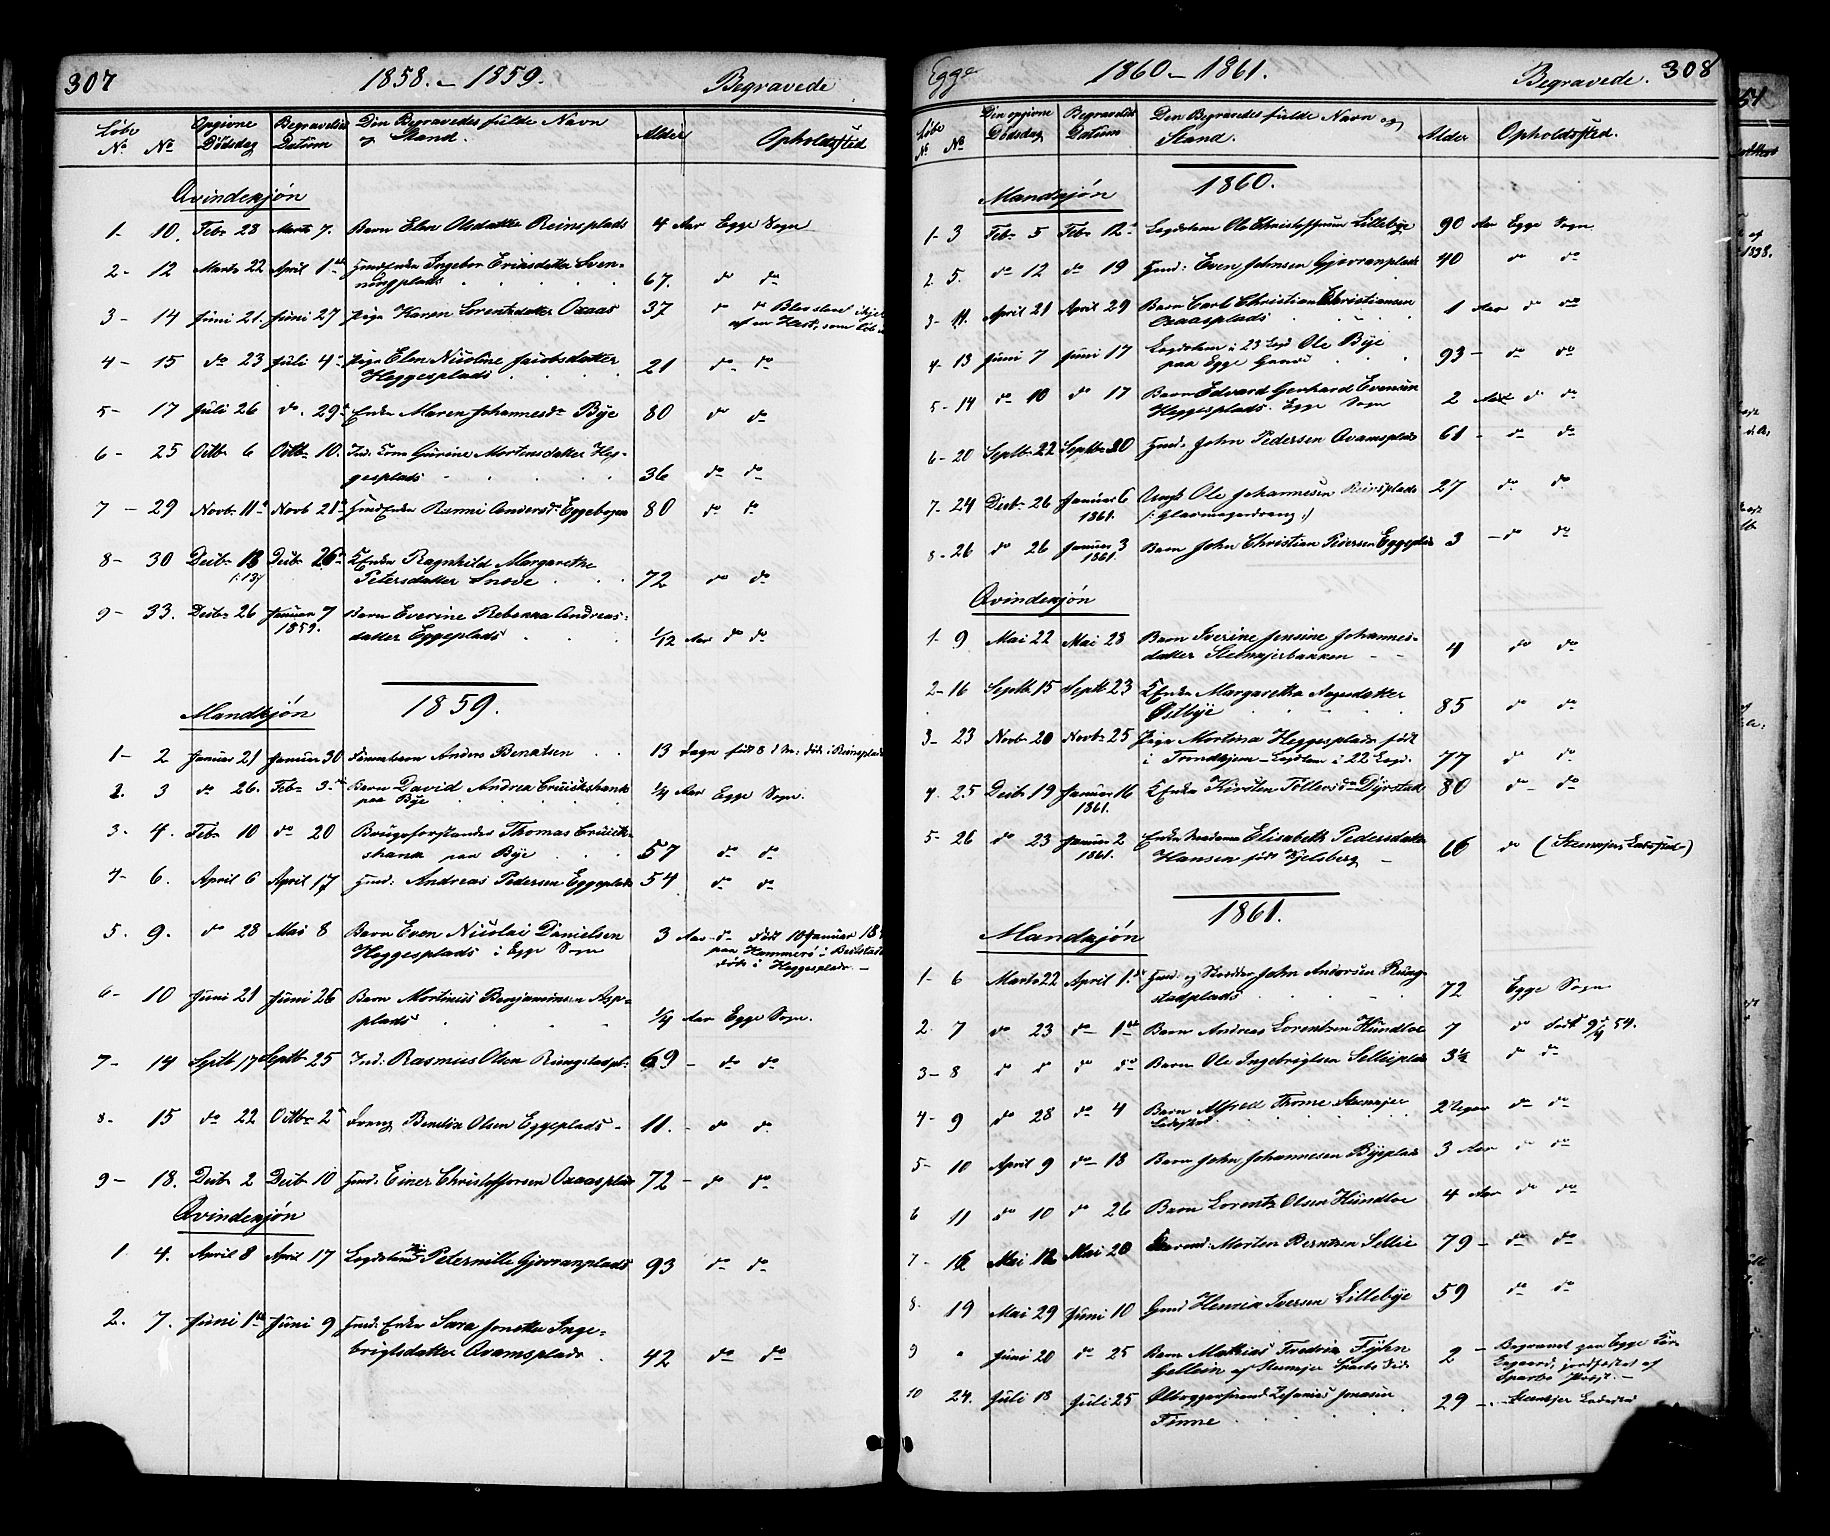 307 1858.-1859. Begravede
Løbe No. No. Opgivne Dødsdag Begravelses Datum Den Begravedes fulde Navn og Stand. Alder Opholdssted
Qvindekjøn
1- 10. Febr 23 Marts 7. Barn Elen Olsdatter Reinsplads 4 Aar Egge Sogn
2- 12 Marts 22 April 1ste Huusenke Ingebor Eriksdatter Sven-
ningplads 67. do do
3- 14 Juni 21. Juni 27 Pige Karen Lorentsdatter Oxaas 37 do do Blev slaaet ihjel
af en Hest, som
4- 15 do 23 Juli 4de Pige Elen Nicoline Jacobsdatter
Heggesplads 21 do do
5- 17 Juli 26 do 29de Enke Maren Johannesdr Bye 80 do do
6- 25 Octbr 6 Octbr 10. Ind. Kone Gurine Mortensdatter Heg-
gesplads 36 do do
7- 29 Novbr 11te Novb 21de Huusenke Ranni Andersdr Eggebogen 80 do do
8- 30 Decbr 13 Decbr 26de Enke Ragnhild Margarethe
/:13/ Petersdatter Snove 72 do do
9- 33. Decbr 26 Januar 7 Barn Everine Rebekka Andreas-
1859. datter Eggeplads 1/12 Aar do do
1859.
Mandkjøn
1- 2 Januar 21 Januar 30 Anders Berntsen 13 Dage født 8 d M: døde i Reinsplads
2. 3 do 26. Febr 3die Barn David Andrea Cruickshank
paa Bye 1/4 Aar Egge Sogn.
3- 4. Febr 10 do 20 Brugsforstander Thomas Cruick-
shank paa Bye 57 do do
4- 6. April 6 April 17 Huusmd: Andreas Pedersen Eggeplads 54 do do
5. 9. do 28 Mai 8 Barn Even Nicolai Danielsen
Heggesplads i Egge Sogn 3 Aar do født 10 Januar 18
paa Hammerø i Beitstad
døde i Heggesplads -
6- 10 Juni 21 Juni 26 Barn Mortinus Benjaminsen Asp-
plads 1/4 Aar Egge Sogn.
7- 14 Septb 17 Septbr 25 Ind: Rasmus Olsen Rungstadpl: 69 - do do
8- 15 do 22 Octbr 2den Dreng Bendix Olsen Eggeplads - 11. - do do
9- 18. Decbr 2 Decbr 10 Huusmd. Einer Christoffersen Oxaasplads 72 - do do
Qvindekjøn
1. 4. April 8 April 17 Peternille Gjevranplads 93 do do
2. 7. Juni 1ste Juni 9 Huusmd. Enke Sara Jonetta Inge-
brigtsdatter Qvamsplads 42 do do
Egge 1860-1861. Begravede. 308
Løbe No. No. Den opgivne Dødsdag Begravelses Datum Den Begravedes fulde Navn og Stand. Alder Opholdssted.
1860.
Mandkjøn
1- 3 Febr 5 Febr 12te Lægdslem Ole Christoffersen Lillebye 90 Aar Egge Sogn
2 5. do 12 do 19 Huusmd: Even Johnsen Gjevranplads 40 do do
3- 11. April 21 April 29 Barn Carl Christian Christiansen
Oxaasplads 1 Aar do do
4- 13 Juni 7 Juni 17 Lægdslem i 23 Lægd Ole Bye
paa Egge Gaard 93 - do do
5- 14 do 10 do 17 Barn Edvard Gerhard Evensen
Heggesplads. Egge Sogn 2 Aar do do
6- 20 Septbr 22 Septbr 30 Huusmd. John Pedersen Qvamsplads 61 - do do
7- 24 Decbr 26 Januar 6 Ungk Ole Johannesen Reinsplads 27 do do
1861. /: Glasmagerdreng :/
8- 26 do 26 Januar 3 Barn John Christian Pedersen Eggeplads 3 - do do
1861.
Qvindekjøn
1- 9 Mai 22 Mai 28 Barn Iverine Jensine Johannes-
datter Steenkjerbakken - - 4 do do
2- 16 Septbr 15 Septbr 23 Enke Margaretha Aagesdatter
Østbye 85 do do
3- 23 Novbr 20 Novbr 25 Pige Mortina Heggesplads født
i Trondhjem - Lægdslem i 22 Lægd. 77 do do
4. 25 Decbr 19 Januar 16 Enke Kirsten Tollersdr Dyrstad 80 do do
1861.
5- 26 do 23 Januar 2 Enke Madame Elisabeth Pedersdatter
1861. Hansen født Fjelsberg - 66 do (Steenkjer Ladested)
1861.
Mandkjøn
1- 6 Marts 22 April 1ste Huusmd. og Skrædder John Andersen Rung-
stadplads 72 Egge Sogn
2. 7 do 23 do 1ste Barn Andreas Lorentsen Hundloe 7 do født 9/4 54.
3- 8 do do do do Barn Ole Ingebrigtsen Selliplads 3 1/2 do do
4- 9 do 28 do 4 Barn Alfred Trome Steenkjer
Ladested 2 Uger do do
5- 10 April 9 do 18 Barn John Johannesen Byeplads 3 Aar do do
6 11 do 10 do 26 Barn Lorents Olsen Hundloe 4 Aar do do
7- 16 Mai 12 Mai 20 Morten Berntsen Sellie 79 - do do
8. 19 Mai 29 Juni 10 Gmd Henrik Iversen Lillebye 59 do do
9 " Juni 20 do 25 Barn Mathias Fredrik Fyhn
Gellein af Steenkjer Sparbo Side 2 - Begravet paa Egge Kir-
kegaard, jordfæstet af
Sparbo Præst. -
10 24. Juli 18 Juli 25 Zefanias Jonasen
Finne 29 - Steenkjer Ladested